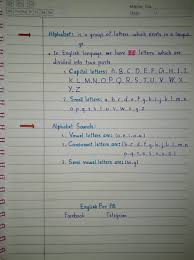 Alphabet: is a group of letters which exists in a langua
ge.
In English language we have 26 letters which are
divided into two parts
1. Capital letters: A, B, C, D, E, F, G, H, I, J,
K, L, M, N, O, P, Q, R, S, T, U, V, W, X,
Y, Z
2. Small letters: a, b, c, d, e, f, g, h, i, j, k, l, m, n
o, p, q, r, s, t, u, v, w, x, y, z
Alphabet Sounds:
1. Vowel letters are: (a, e, i, o, u)
2. Consonant letters are: (b, c, d, f, g, h, j, k, l, m, n
p, q, r, s, t, v, x, z)
3. Semi vowel letters are: (w, y)
English For All
Facebook Telegram